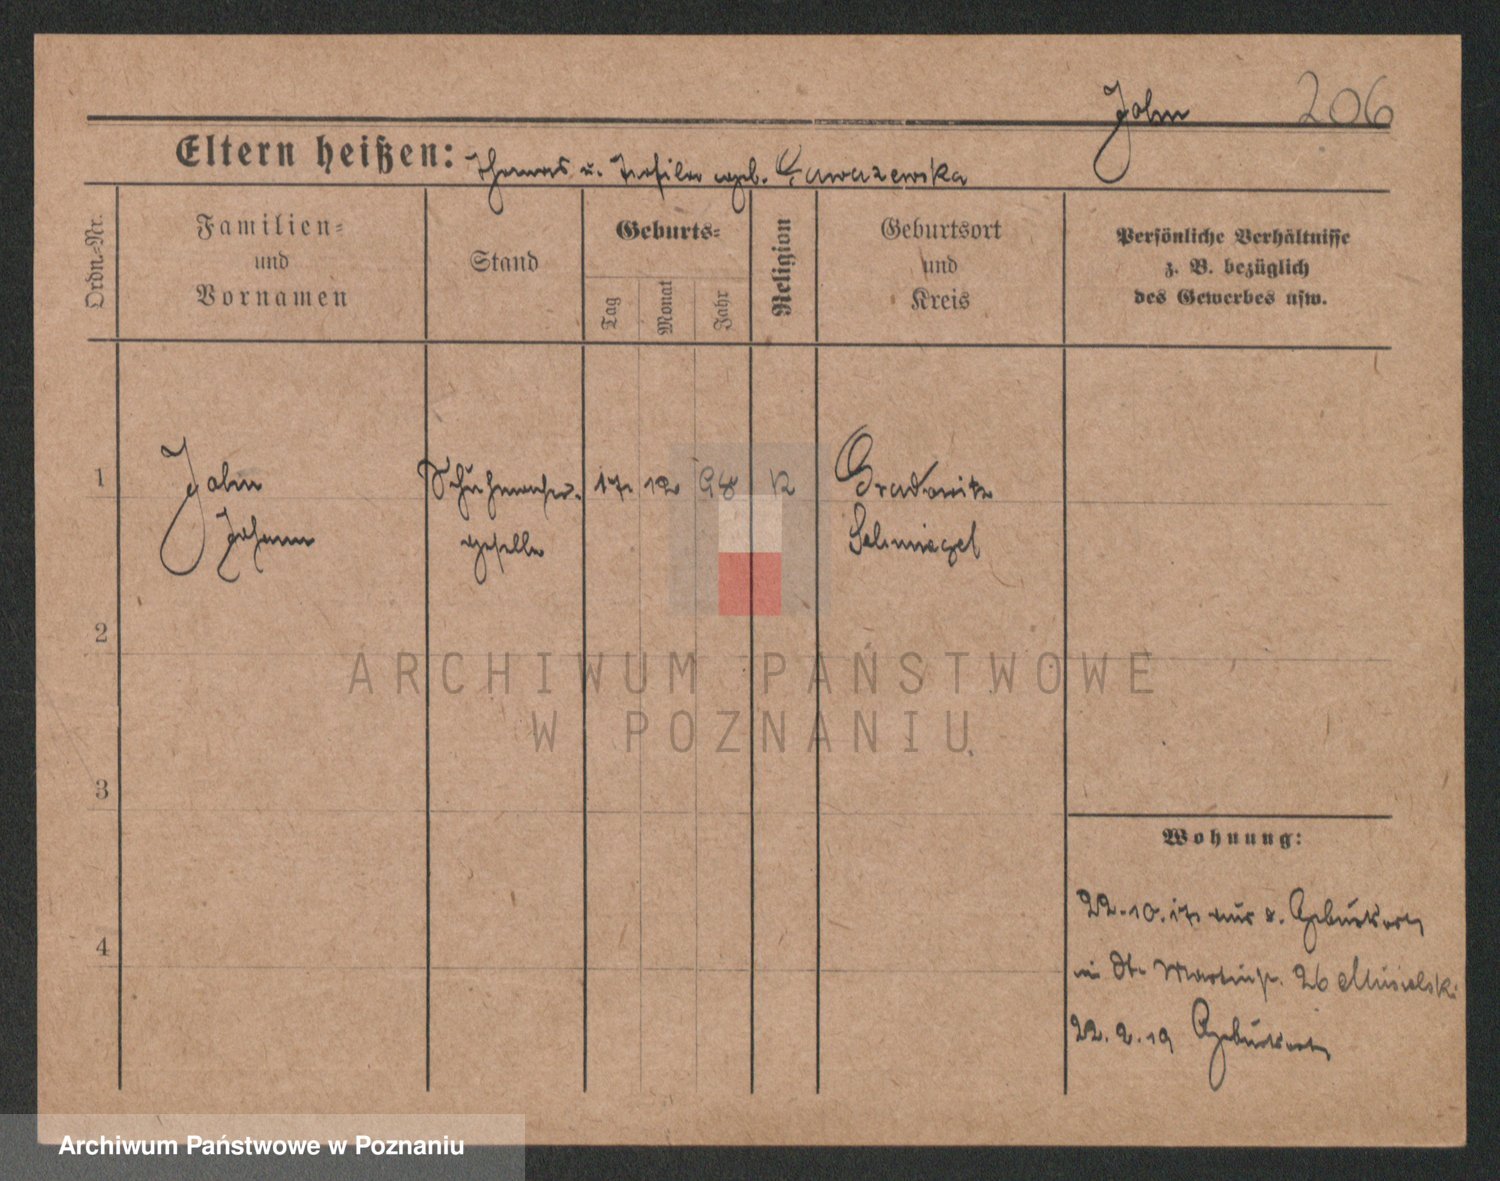 John 206
Eltern heißen: Thomas u. Teofila geb. Gawazewska
Ordn.-Nr.
Familien=
und
Vornamen
Stand
Geburts=
Tag
Monat
Jahr
Religion
Geburtsort
und
Kreis
Persönliche Verhältnisse
z. B. bezüglich
des Gewerbes usw.
1 John Schuhmacher- 17 12 98 K Gradowitz
Johann geselle Schmiegel
2
3
4
Wohnung:
22.10.17 aus s. Geburtsort
in St. Martinstr. 26 Musielski
22.2.19 Geburtsort
ARCHIWUM PAŃSTWOWE
W POZNANIU
Archiwum Państwowe w Poznaniu